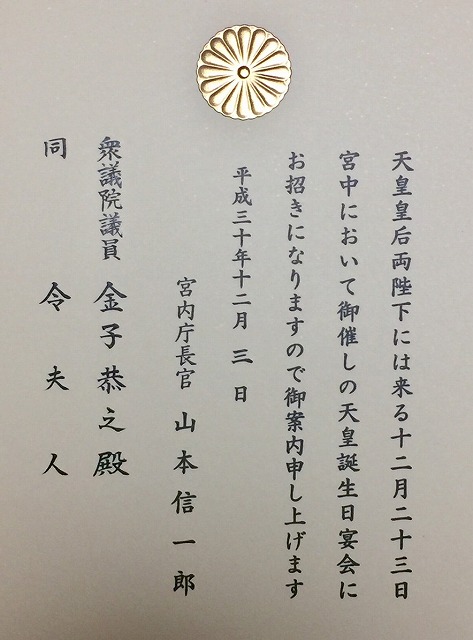 天皇皇后両陛下には来る十二月二十三日
宮中において御催しの天皇誕生日宴会に
お招きになりますので御案内申し上げます
平成三十年十二月三日
宮内庁長官 山本信一郎
衆議院議員 金子恭之殿
同 令夫人